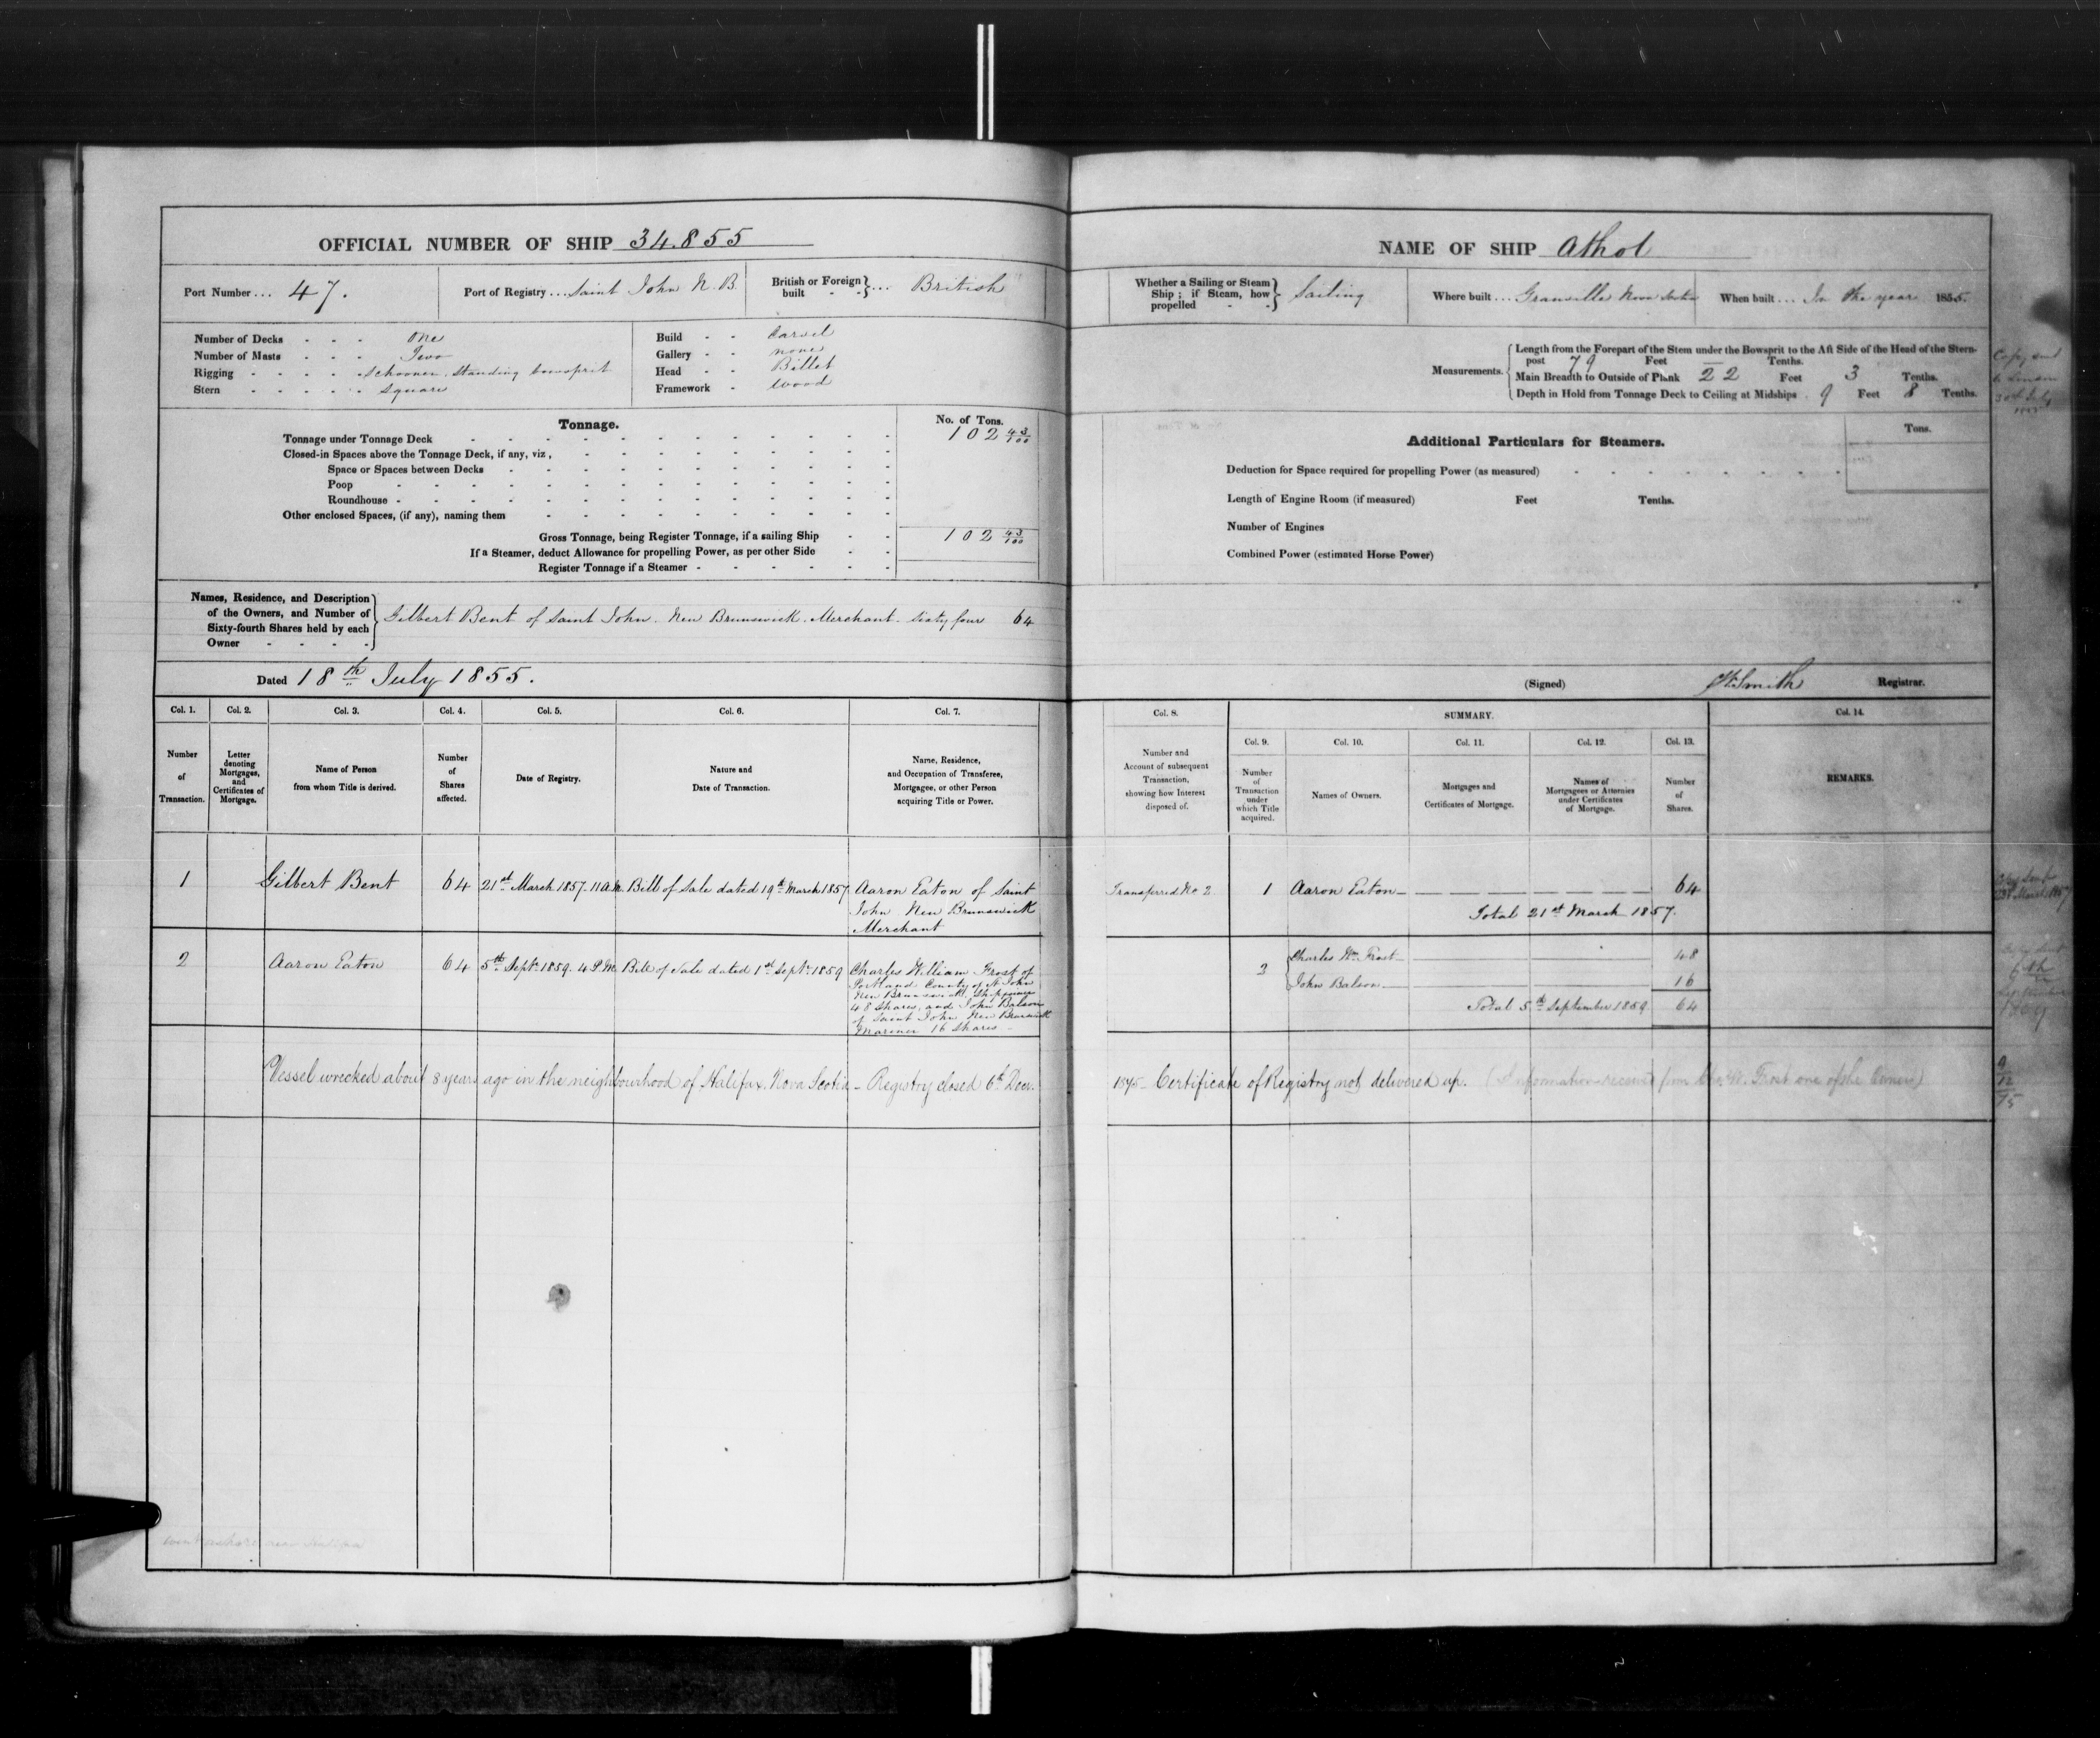 OFFICIAL NUMBER OF SHIP 34.855
Port Number ... 47.
Port of Registry ... Saint John N.B.
British or Foreign built - - } ... British
Number of Decks - - - One
Number of Masts - - - Two
Rigging - - - - Schooner. Standing bowsprit
Stern - - - - - Square
Build - - Carvel
Gallery - - none
Head - - Billet
Framework - Wood
Tonnage.
No. of Tons.
Tonnage under Tonnage Deck 102 43/100
Closed-in Spaces above the Tonnage Deck, if any, viz,
Space or Spaces between Decks
Poop
Roundhouse
Other enclosed Spaces, (if any), naming them
Gross Tonnage, being Register Tonnage, if a sailing Ship 102 43/100
If a Steamer, deduct Allowance for propelling Power, as per other Side
Register Tonnage if a Steamer
Names, Residence, and Description
of the Owners, and Number of
Sixty-fourth Shares held by each
Owner
Gilbert Bent of Saint John. New Brunswick. Merchant. Sixty four 64
Dated 18th July 1855.
Col. 1. Col. 2. Col. 3. Col. 4. Col. 5. Col. 6. Col. 7.
Number of Transaction.
Letter denoting Mortgages, and Certificates of Mortgage.
Name of Person from whom Title is derived.
Number of Shares affected.
Date of Registry.
Nature and Date of Transaction.
Name, Residence, and Occupation of Transferee, Mortgagee, or other Person acquiring Title or Power.
1 Gilbert Bent 64 21st March 1857. 11 A.M. Bill of Sale dated 19th March 1857 Aaron Eaton of Saint
John New Brunswick
Merchant
2 Aaron Eaton 64 5th Septr. 1859. 4 P.M. Bill of Sale dated 1st Septr. 1859 Charles William Frost of
Portland County of St John
New Brunswick, Shipowner
48 Shares, and John Balson
of Saint John New Brunswick
Mariner 16 Shares
Vessel wrecked about 8 years ago in the neighbourhood of Halifax. Nova Scotia - Registry closed 6th Decr.
NAME OF SHIP Athol
Whether a Sailing or Steam Ship; if Steam, how propelled - - } Sailing
Where built ... Granville Nova Scotia
When built ... In the year 1855.
Measurements.
Length from the Forepart of the Stem under the Bowsprit to the Aft Side of the Head of the Stern-
post 79 Feet — Tenths.
Main Breadth to Outside of Plank 22 Feet 3 Tenths.
Depth in Hold from Tonnage Deck to Ceiling at Midships 9 Feet 8 Tenths.
Additional Particulars for Steamers.
Tons.
Deduction for Space required for propelling Power (as measured)
Length of Engine Room (if measured) Feet Tenths.
Number of Engines
Combined Power (estimated Horse Power)
(Signed) Smith Registrar.
Col. 8. SUMMARY. Col. 14.
Col. 9. Col. 10. Col. 11. Col. 12. Col. 13.
Number and Account of subsequent Transaction, showing how Interest disposed of.
Number of Transaction under which Title acquired.
Names of Owners.
Mortgages and Certificates of Mortgage.
Names of Mortgagees or Attornies under Certificates of Mortgage.
Number of Shares.
REMARKS.
Transferred No 2. 1 Aaron Eaton 64
Total 21st March 1857.
2 Charles Wm. Frost 48
John Balson 16
Total 5th September 1859. 64
1875 - Certificate of Registry not delivered up. (Information received from Chs. W. Frost one of the Owners)
Copy sent
6th
9
12
75